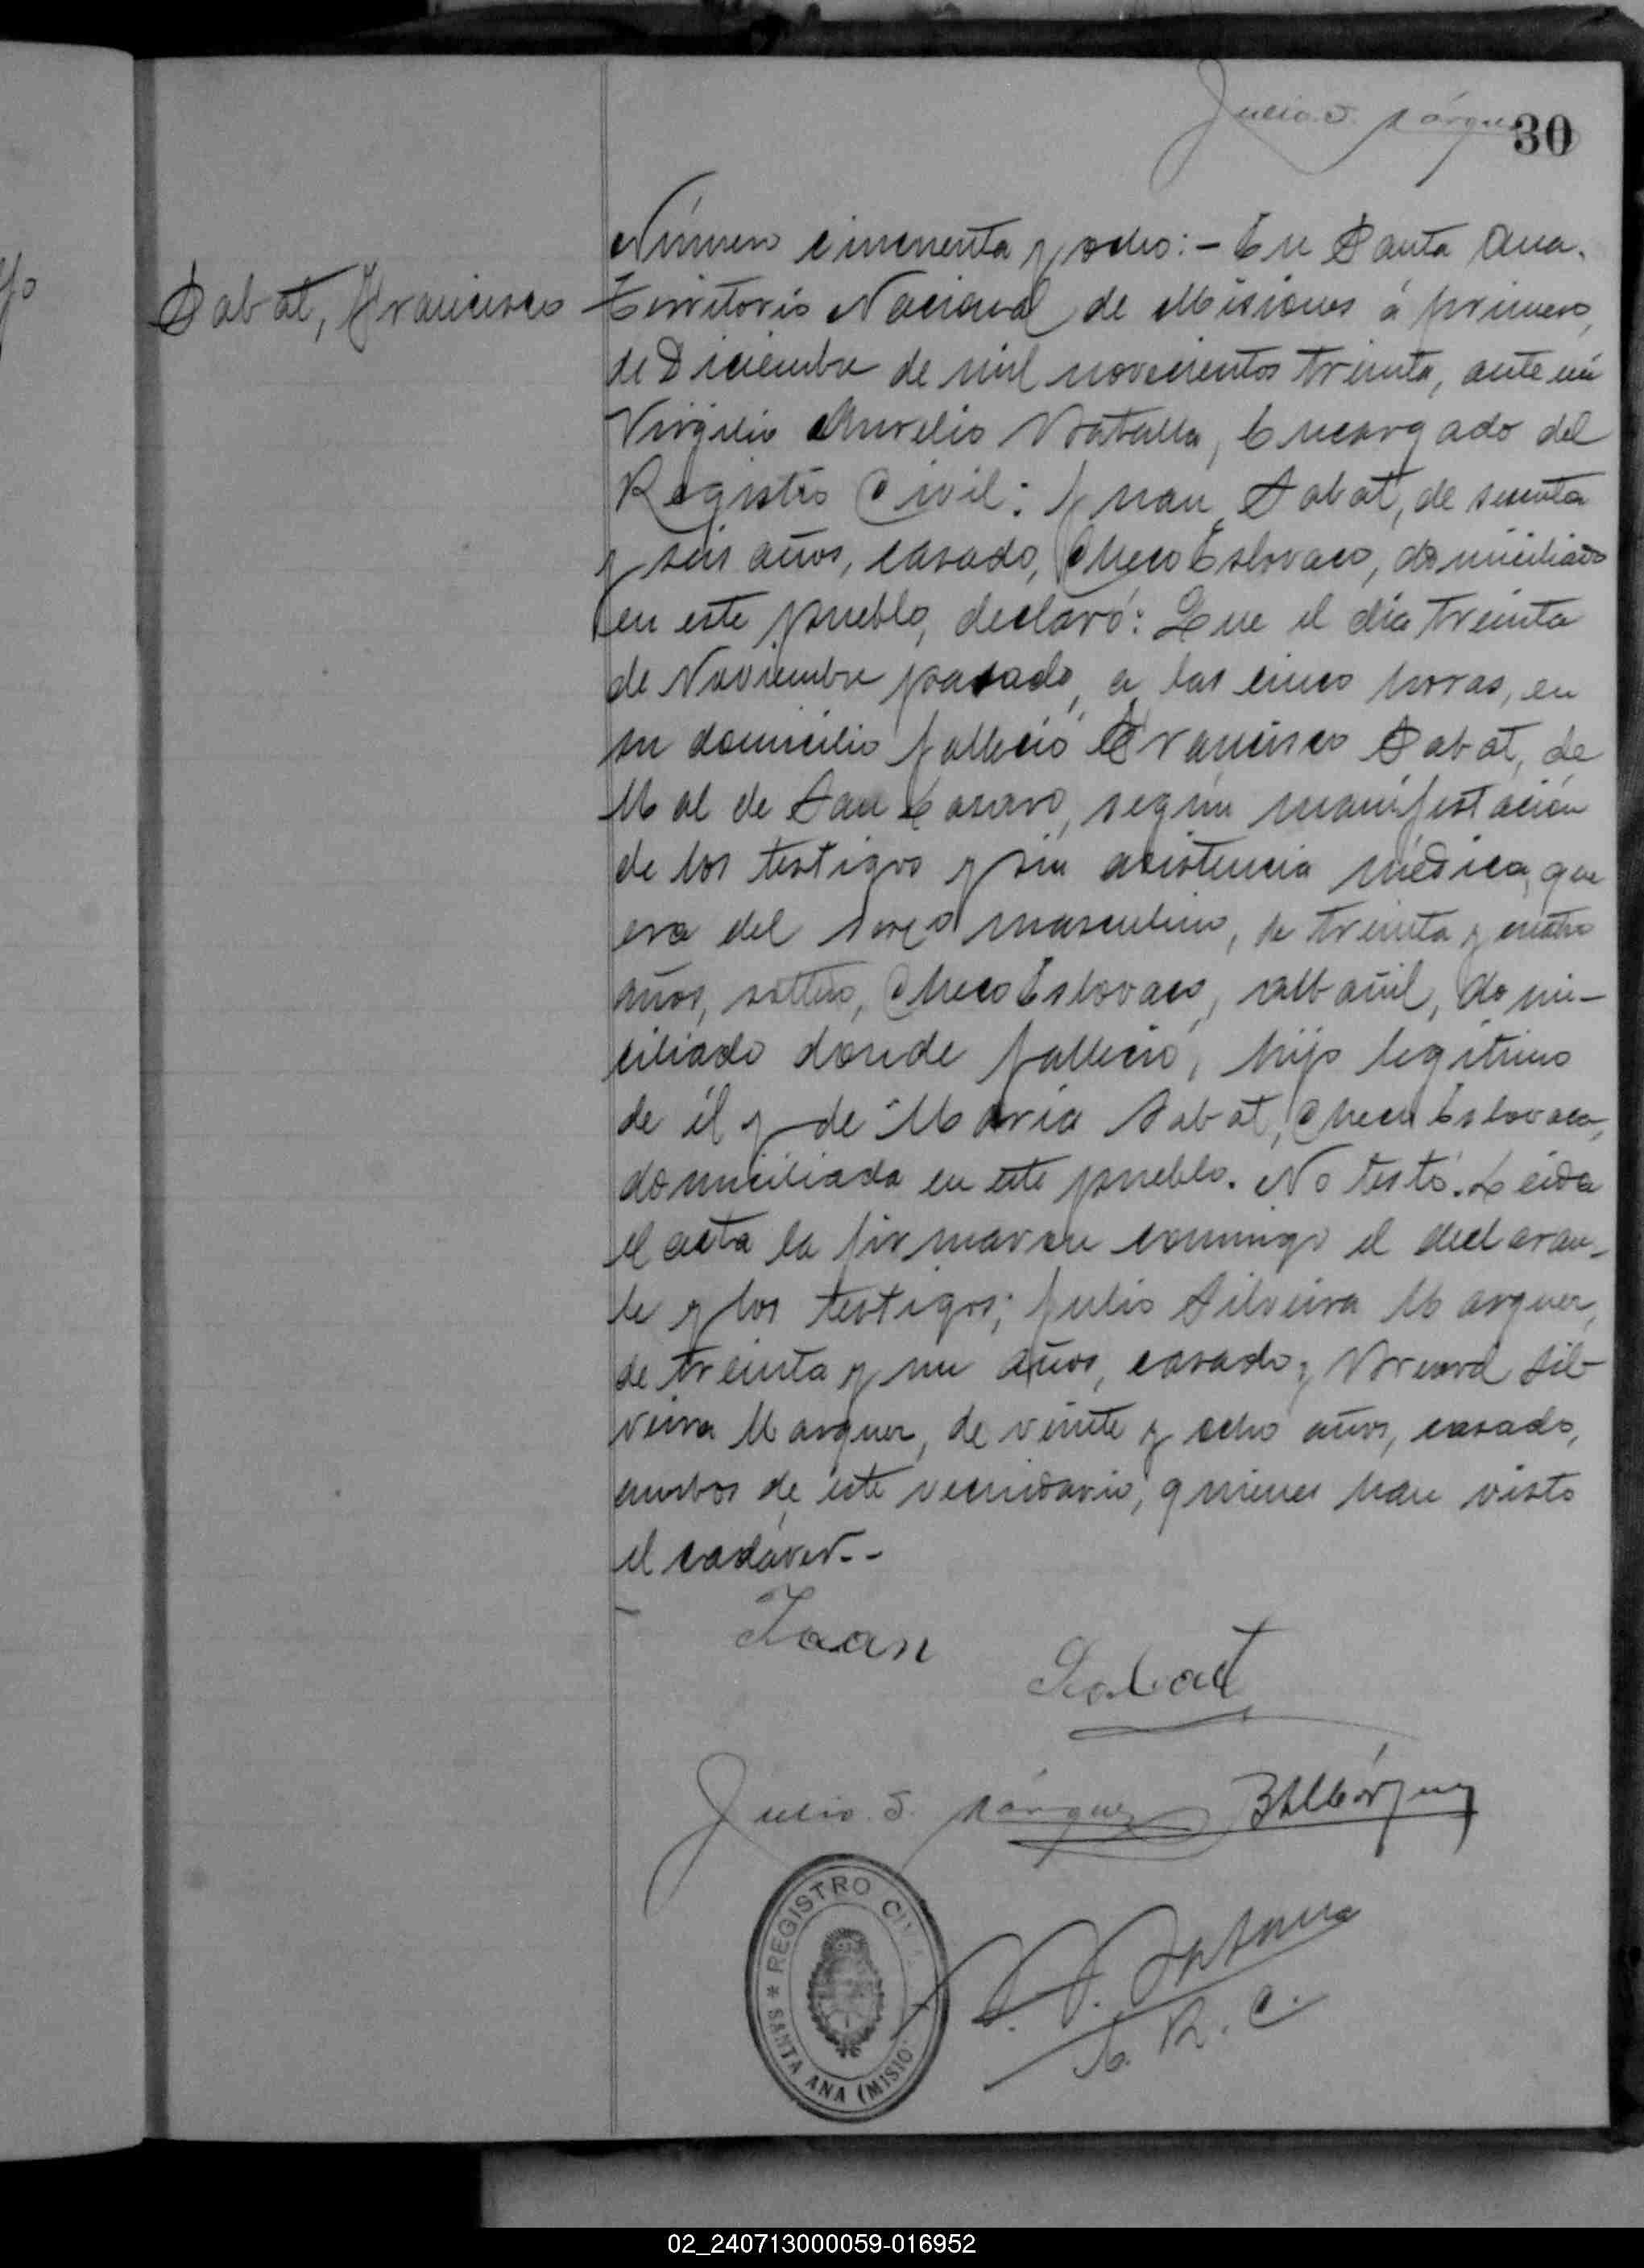 Julio S. Márquez
30
Sabat, Francisco
Número cincuenta y ocho:- En Santa Ana.
Territorio Nacional de Misiones á primero,
de Diciembre de mil novecientos treinta, ante mi
Virgilio Aurelio Batalla, Encargado del
Registro Civil: Juan Sabat, de sesenta
y seis años, casado, Checo Eslovaco, domiciliado
en este pueblo, declaró: Que el día treinta
de Noviembre pasado, a las cinco horas, en
su domicilio falleció Francisco Sabat, de
Mal de San Lázaro, según manifestación
de los testigos y sin asistencia médica, que
era del sexo masculino, de treinta y cuatro
años, soltero, Checo Eslovaco, albañil, domi-
ciliado donde falleció, hijo legítimo
de él y de María Sabat, Checo Eslovaca,
domiciliada en este pueblo. No testó. Leída
el acta la firmaron conmigo el declaran-
te y los testigos; Julio Silveira Marquez,
de treinta y un años, casado; y Silveira
Marquez, de veinte y ocho años, casado,
ambos de este vecindario, quienes han visto
el cadáver.--
Juan
Sabat
Julio S. Márquez BSMárquez
REGISTRO CIVIL
* SANTA ANA (MISIO
V. A. Batalla
E. R. C.
02_240713000059-016952